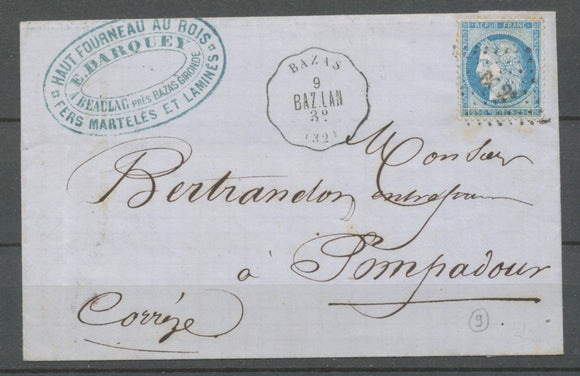 HAUT FOURNEAU AU BOIS
E. DARQUEY
A BEAULAC PRÈS BAZAS GIRONDE
FERS MARTELÉS ET LAMINÉS
BAZAS
9
BAZ.LAN
3º
(32)
REPUB. FRANC.
25 25
Monsieur
Bertrandon
à Pompadour
Corrèze
9